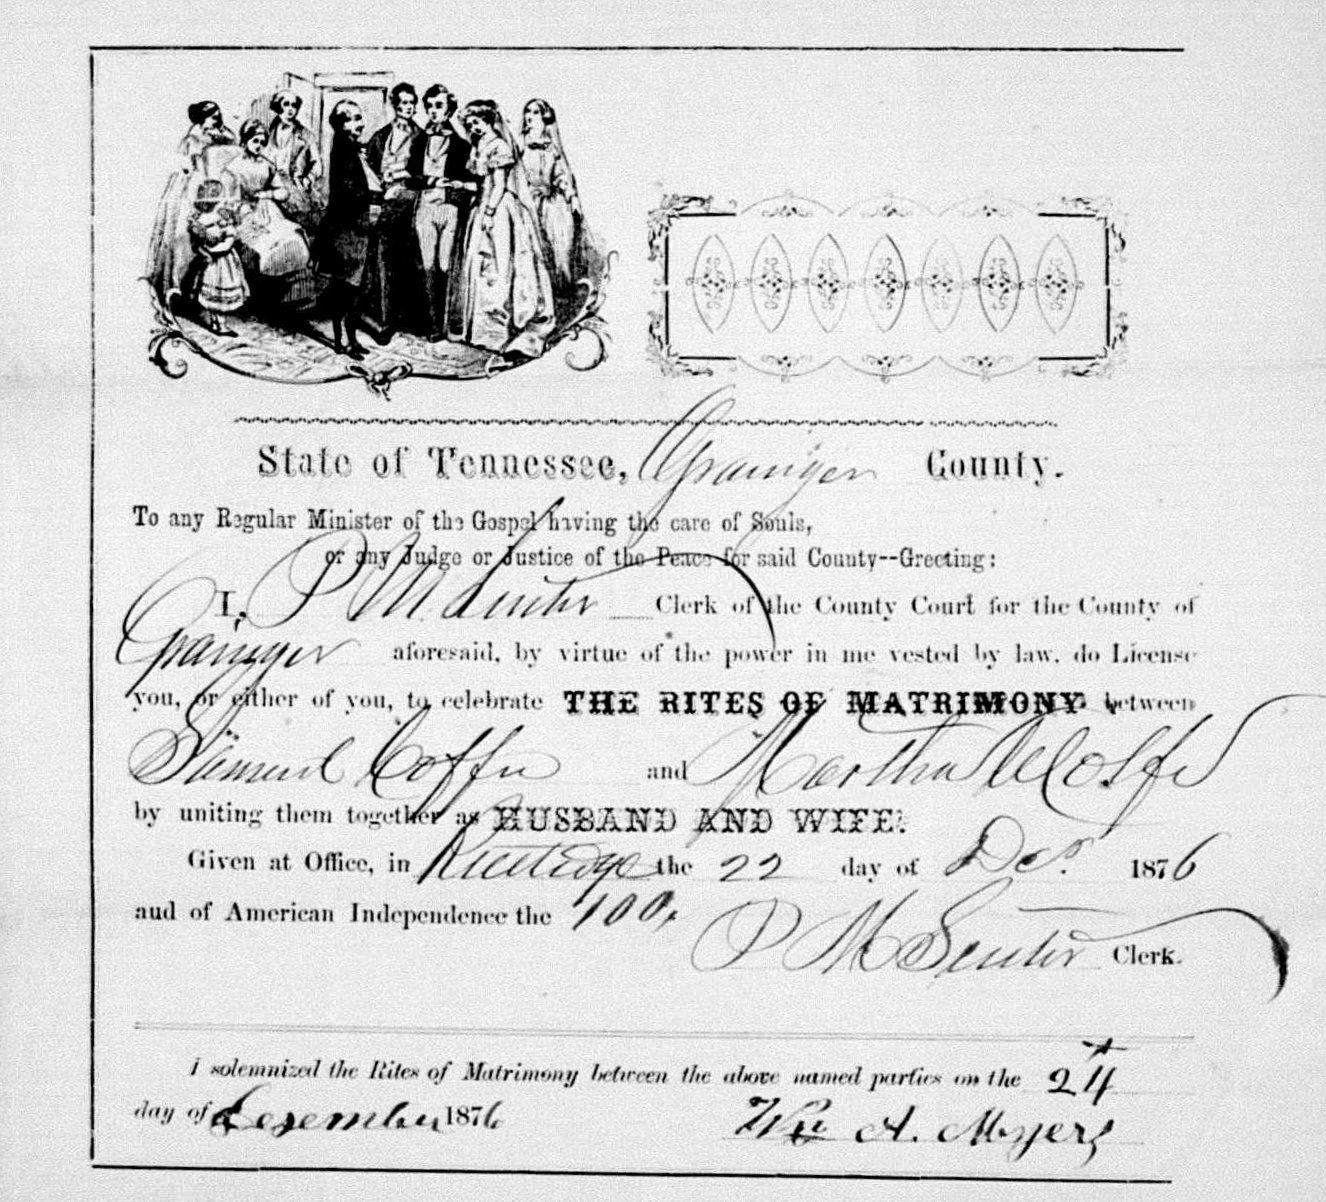 State of Tennessee, Grainger County.
To any Regular Minister of the Gospel having the care of Souls,
or any Judge or Justice of the Peace for said County--Greeting:
I, P M. Senter Clerk of the County Court for the County of
Grainger aforesaid, by virtue of the power in me vested by law, do License
you, or either of you, to celebrate THE RITES OF MATRIMONY between
Samuel Coffee and Martha Wolfe
by uniting them together as HUSBAND AND WIFE.
Given at Office, in Rutledge the 22 day of Dec. 1876
and of American Independence the 100.
P M Senter Clerk.
I solemnized the Rites of Matrimony between the above named parties on the 24
day of desember 1876 Wm A. Myers